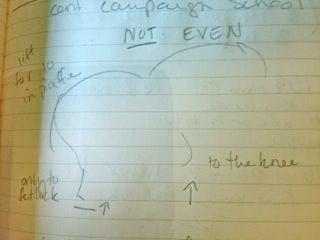 cont. campaign school
NOT EVEN
lift
for 10
in piaffe
only to
fetlock
to the knee